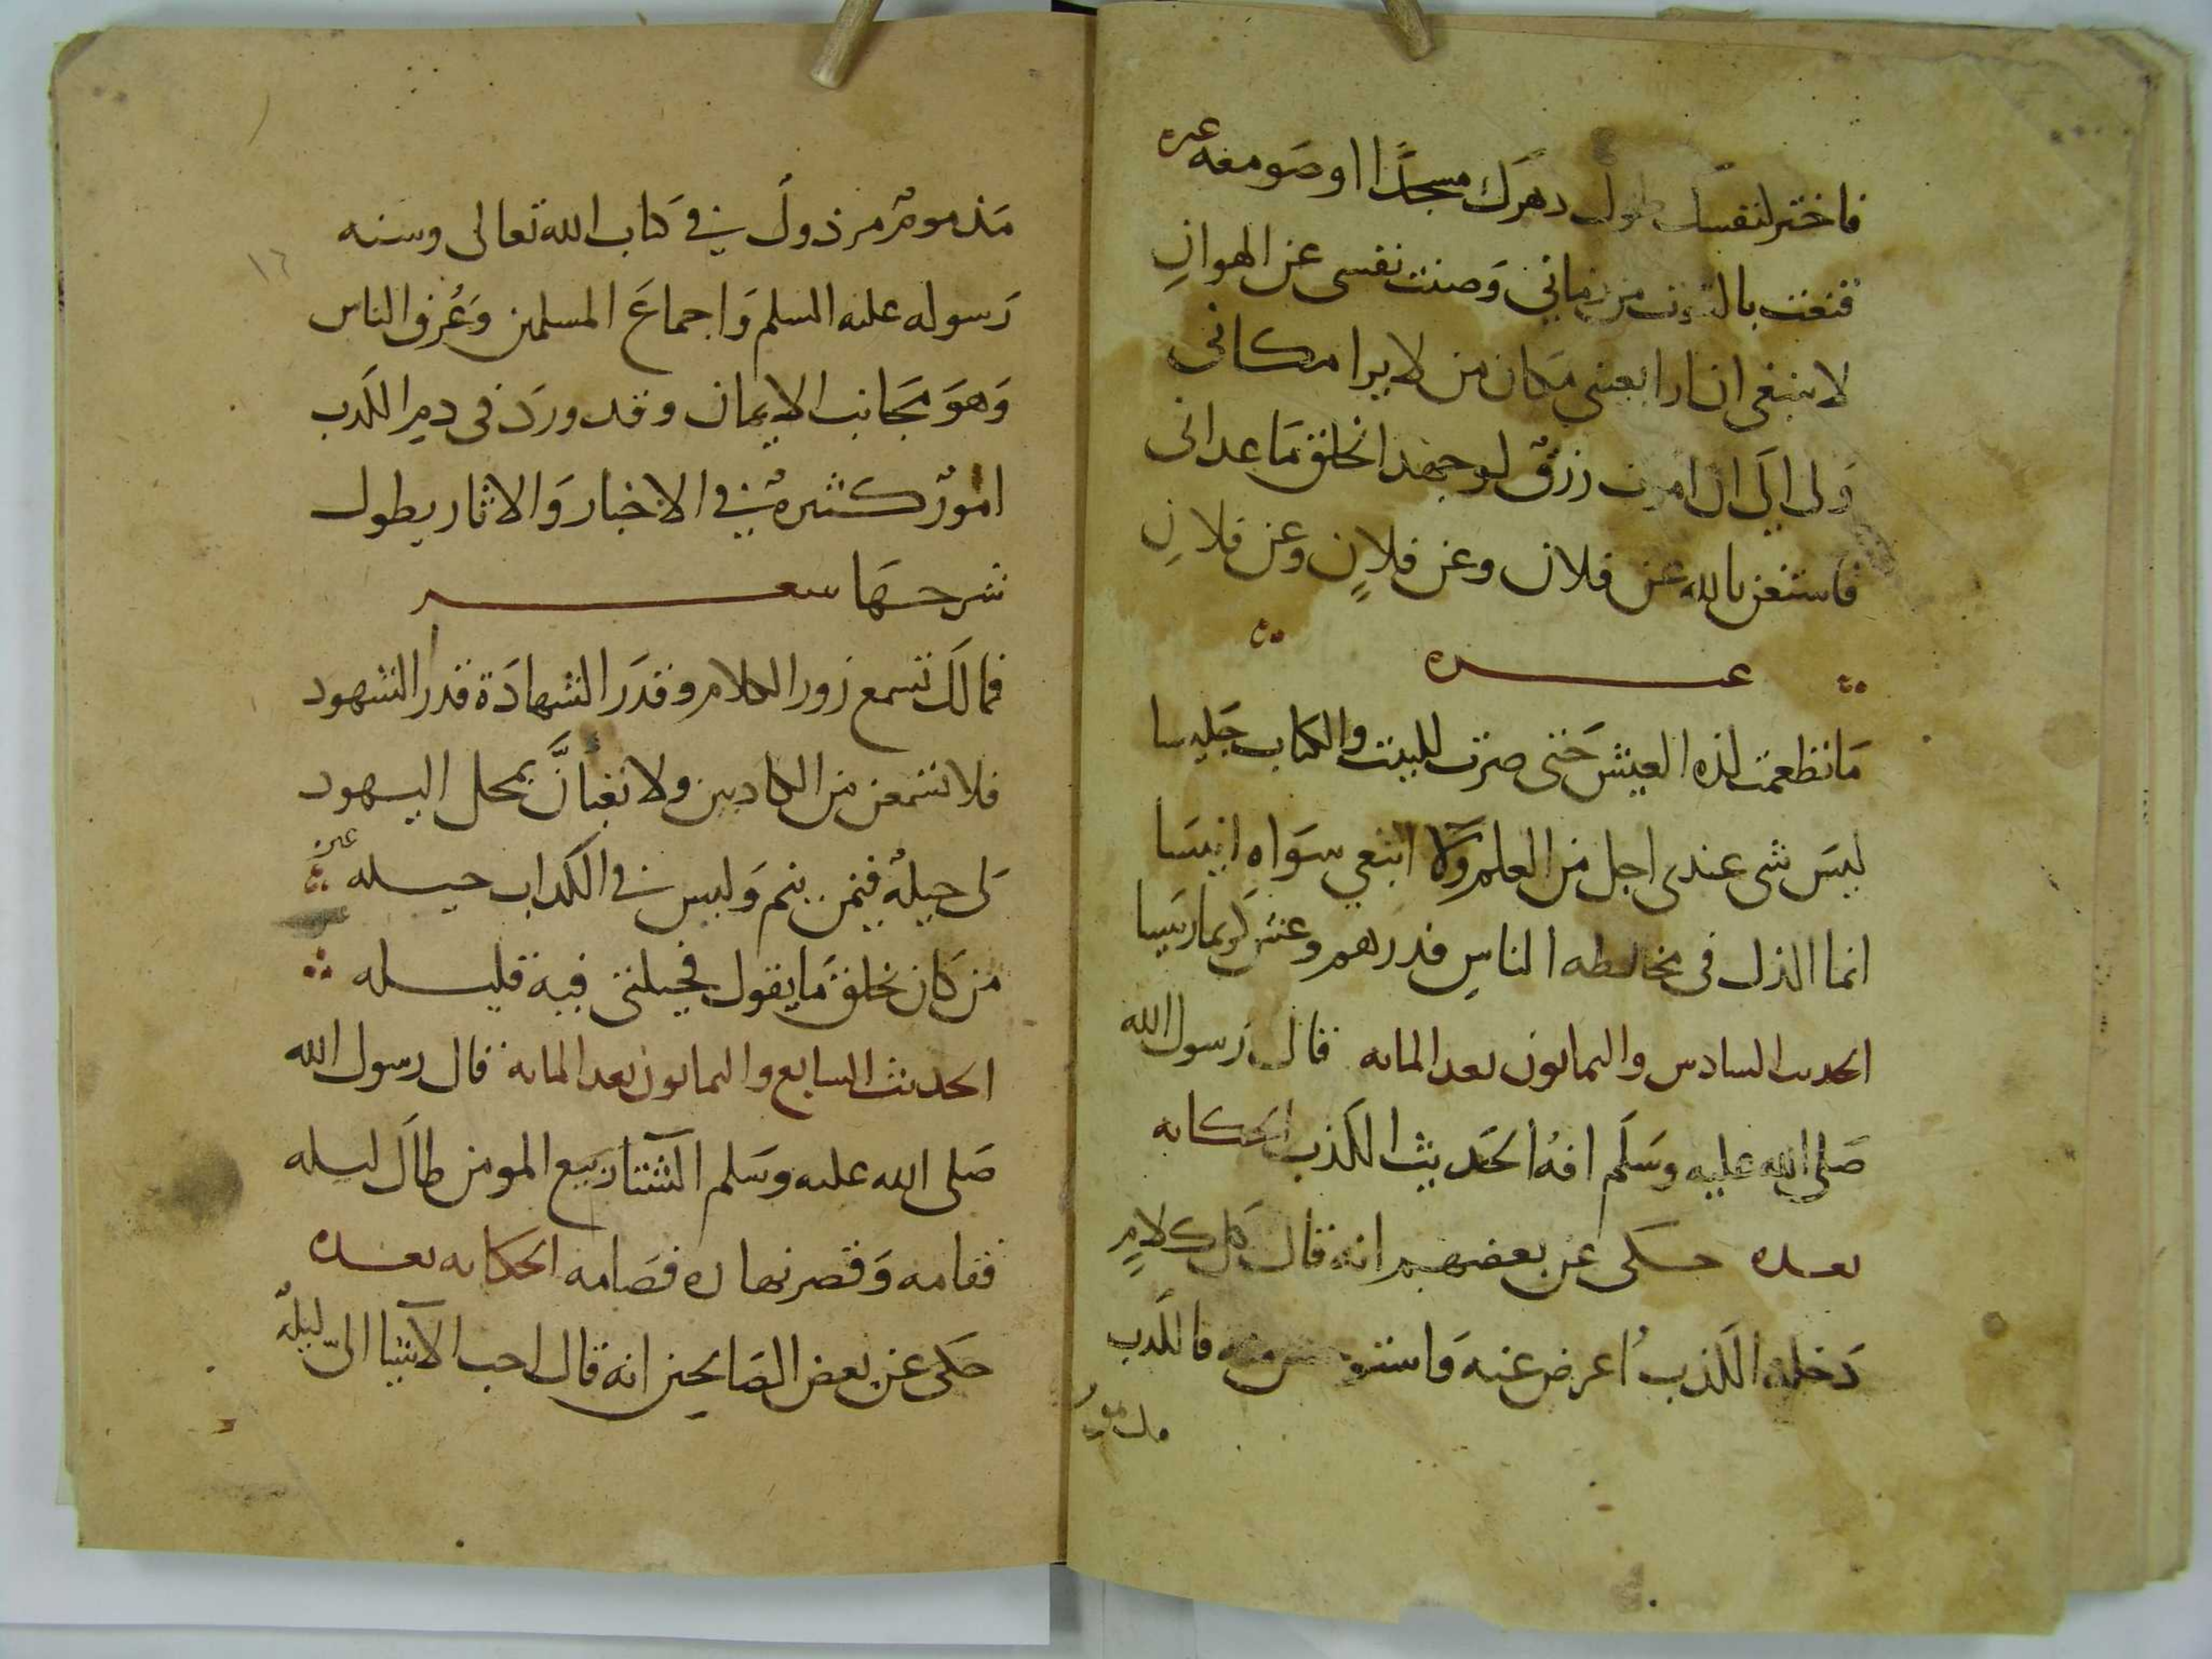 فاختر لنفسك طول دهرك مسجدًا او صومعه غيره
قنعت بالقوت من زماني وَصنت نفسى عن الهوانِ
لا ينبغى ان ارا بعينى مكان من لا يرا مكانى
وَلى الَى ان اموت رزق لو جهد الخلق مَا عدانى
فاستغن بالله عن فلان وعن فلانٍ وعن فلانِ
غيره
مَا تطعمت لذه العيش حَتى صرت للبيت والكتاب جَليسا
ليسَ شى عندى اجل من العلم وَلا ابتغي سوَاه انيسَا
انما الذل فى مخالطه الناس فدرهم وعش كريما رييسا
الحديث السادس والثمانون بعد المايه قال رَسول الله
صَلى الله عليه وسَلَم افه الحَديث الكذب الحكايه
بعده حكى عن بعضهم انه قال كل كلامٍ
دَخله الكذب اعرض عنه فالكذب
مذموم
مَذمومٌ مرذولٌ في كتاب الله تعالى وسنه
رَسوله عليه السلم وَاجماعَ المسلمين وَعُرف الناس
وَهوَ مجَانب الايمان وقد وردَ فى ذم الكذب
امورٌ كثيرهٌ في الاخبار وَالاثار يطول
شرحهَا شعر
فمالكَ تسمع زور الكلام وقدَر الشهادَة قدر الشهود
فلا تسمعن من الكاذبين ولا تعبأنَّ بمحل اليهود
لى حيلهٌ فيمن ينم وَليس في الكذاب حيله غيره
من كان يخلق مَا يقول فحيلتى فيه قليله
الحديث السابع والثمانون بعد المايه قال رسول الله
صَلى الله عليه وسَلم الشتا ربيع المومن طالَ ليله
فقامه وَقصر نهاره فصَامه الحكايه بعده
حكى عن بعض الصَالحين انه قال احب الاشيا الىّ ليلهٌ
١٦